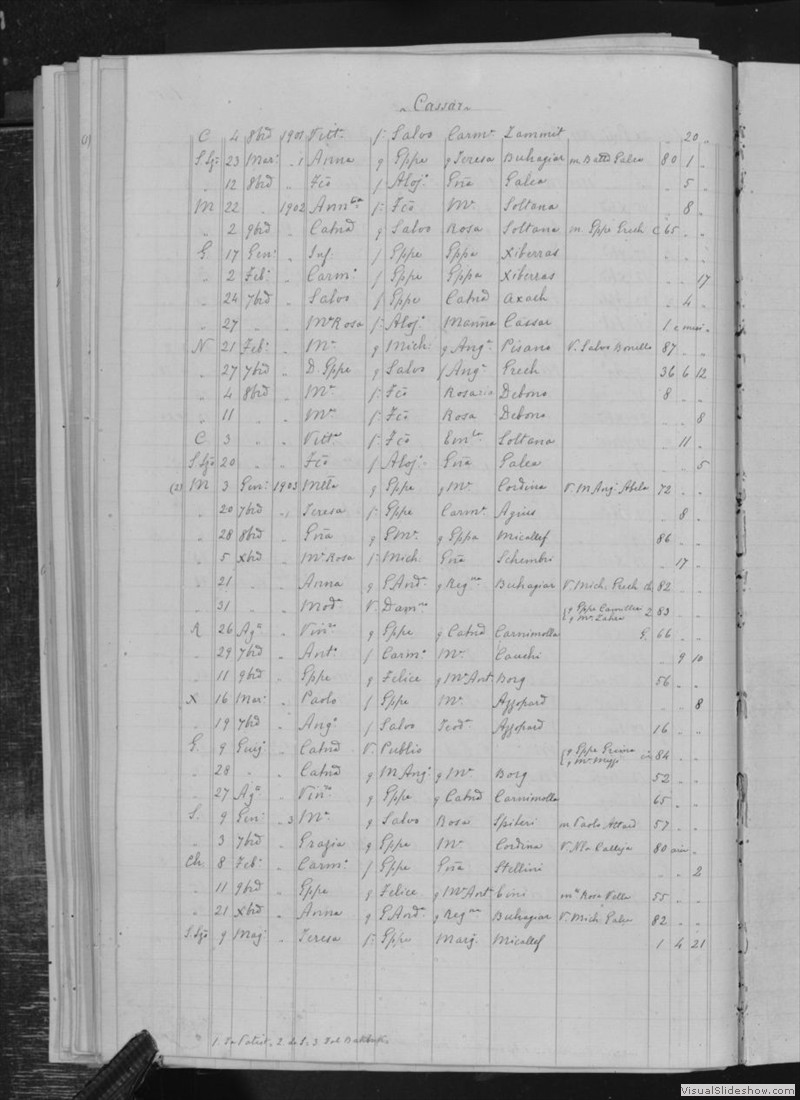 Cassar
C 4 8brẽ 1901 Vitt.a f Salvo Carm.a Zammit " 20 "
S Lj.o 23 Mar: " 1 Anna q Gppe q Teresa Buhagiar m Batt.a Galea 80 1 "
" 12 8brẽ " Fco f Aloj.o Gña Galea " 5 "
M 22 " 1902 Ann f Fco M.a Soltana " 8 "
" 2 9brẽ " Catnã q Salvo Rosa Soltana m. Gppe Grech C 65 " "
G 17 Gen: " Inf. f Gppe Gppa Xiberras " " "
" 2 Feb: " Carm.o f Gppe Gppa Xiberras " " 17
" 24 7brẽ " Salvo f Gppe Catnã Axach " 4 "
" 27 " " M.a Rosa f Aloj.o Marnña Cassar 1
N 21 Feb: " M.a q Mich: q Ang.a Pisano V. Salvo Bonello 87 " "
" 27 7brẽ " D. Gppe q Salvo f Ang.a Grech 36 6 12
" 4 8brẽ " M.a f Fco Rosaria Debono 8 " "
" 11 " " M.a f Fco Rosa Debono " " 8
C 3 " " Vitt.a f Fco Em Soltana " 11 "
S Lj.o 20 " " Fco f Aloj.o Gña Galea " " 5
(2) M 3 Gen: 1903 q Gppe q M.a Cordina V. M Ang.o Abela 72 " "
" 20 7brẽ " Teresa f Gppe Carm.a Agius " 8 "
" 28 8brẽ " Gña q G M.a q Gppa Micallef 86 " "
" 5 Xbrẽ " M.a Rosa f Mich Gña Schembri " 17 "
" 21 " " Anna q G And.a q Reg.na Buhagiar V. Mich. Grech 82 " "
" 31 " " Mod.a V. Dam q Gppe Camilleri q M.a Zahra 2 83 " "
R 26 Ag.o " Vin q Gppe q Catnã Carnimolla G. 66 " "
" 29 7brẽ " Ant.o f Carm.o M.a Cauchi " 9 10
" 11 9brẽ " Gppe q Felice q M.a Ant Borg 56 " "
X 16 Mar: " Paolo f Gppe M.a Azzopard " " 8
" 19 7brẽ " Ang.o f Salvo Teod.a Azzopard 16 " "
G. 9 Giug " Catnã V. Publio 84 " "
" 28 " " Catnã q M Ang.o q M.a Borg 52 " "
" 27 Ag.o " Vin q Gppe q Catnã Carnimolla 65 " "
S. 9 Gen: " 3 M.a q Salvo Rosa Spiteri m Paolo Attard 57 " "
" 3 7brẽ " Grazia q Gppe M.a Cordina V. Calleja 80
Ch. 8 Feb: " Carm.o f Gppe Gña Stellini " " 2
" 11 9brẽ " Gppe q Felice q M.a Ant Cini m.o Rosa Vella 55 " "
" 21 Xbrẽ " Anna q G And.a q Reg.na Buhagiar V. Mich 82 " "
S. Lj.o 9 Mag: " Teresa f Gppe Marg. Micallef 1 4 21
VisualSlideshow.com